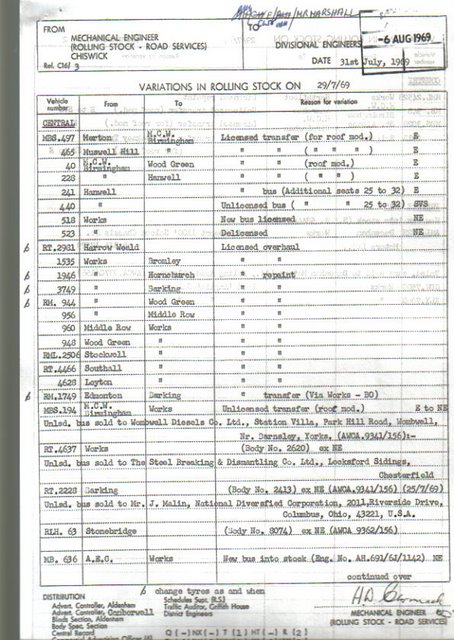 FROM
MECHANICAL ENGINEER
(ROLLING STOCK - ROAD SERVICES)
CHISWICK
Rel. C16/ 3
MR MARSHALL
TO
DIVISIONAL ENGINEERS
-6 AUG 1969
DATE 31st July, 1969
VARIATIONS IN ROLLING STOCK ON 29/7/69
Vehicle number From To Reason for variation
CENTRAL
MBS.497 Merton M.C.W. Birmingham Licensed transfer (for roof mod.) E
465 Muswell Hill " " " " ( " " " ) E
40 M.C.W. Birmingham Wood Green " " (roof mod.) E
228 " Hanwell " " ( " " ) E
241 Hanwell " bus (Additional seats 25 to 32) E
440 " Unlicensed bus ( " " 25 to 32) SVS
518 Works New bus licensed NE
523 " Delicensed NE
b RT.2981 Harrow Weald Licensed overhaul
1535 Works Bromley " "
b 1946 " Hornchurch " repaint
b 3749 " Barking " "
b RM. 944 " Wood Green " "
956 " Middle Row " "
960 Middle Row Works " "
948 Wood Green " " "
RML.2506 Stockwell " " "
RT.4466 Southall " " "
4628 Leyton " " "
b RM.1749 Edmonton Barking " transfer (Via Works - BO)
MBS.194 M.C.W. Birmingham Works Unlicensed transfer (roof mod.) E to NE
Unlsd. bus sold to Wombwell Diesels Co. Ltd., Station Villa, Park Hill Road, Wombwell,
Nr. Barnsley, Yorks. (AWOA.9341/156):-
RT.4637 Works (Body No. 2620) ex NE
Unlsd. bus sold to The Steel Breaking & Dismantling Co. Ltd., Locksford Sidings,
Chesterfield
RT.2228 Barking (Body No. 2413) ex NE (AWOA.9341/156) (25/7/69)
Unlsd. bus sold to Mr. J. Malin, National Diversified Corporation, 2011, Riverside Drive,
Columbus, Ohio, 43221, U.S.A.
RLH. 63 Stonebridge (Body No. 8074) ex NE (AWOA 9362/156)
MB. 636 A.E.C. Works New bus into stock (Eng. No. AH.691/6J/1142) NE
continued over
b change tyres as and when
DISTRIBUTION
Advert. Controller, Aldenham
Advert. Controller, Camberwell
Blinds Section, Aldenham
Body Spec. Section
Central Record
Schedules Supt. (R.S.)
Traffic Auditor, Griffith House
District Engineers
MECHANICAL ENGINEER
(ROLLING STOCK - ROAD SERVICES)